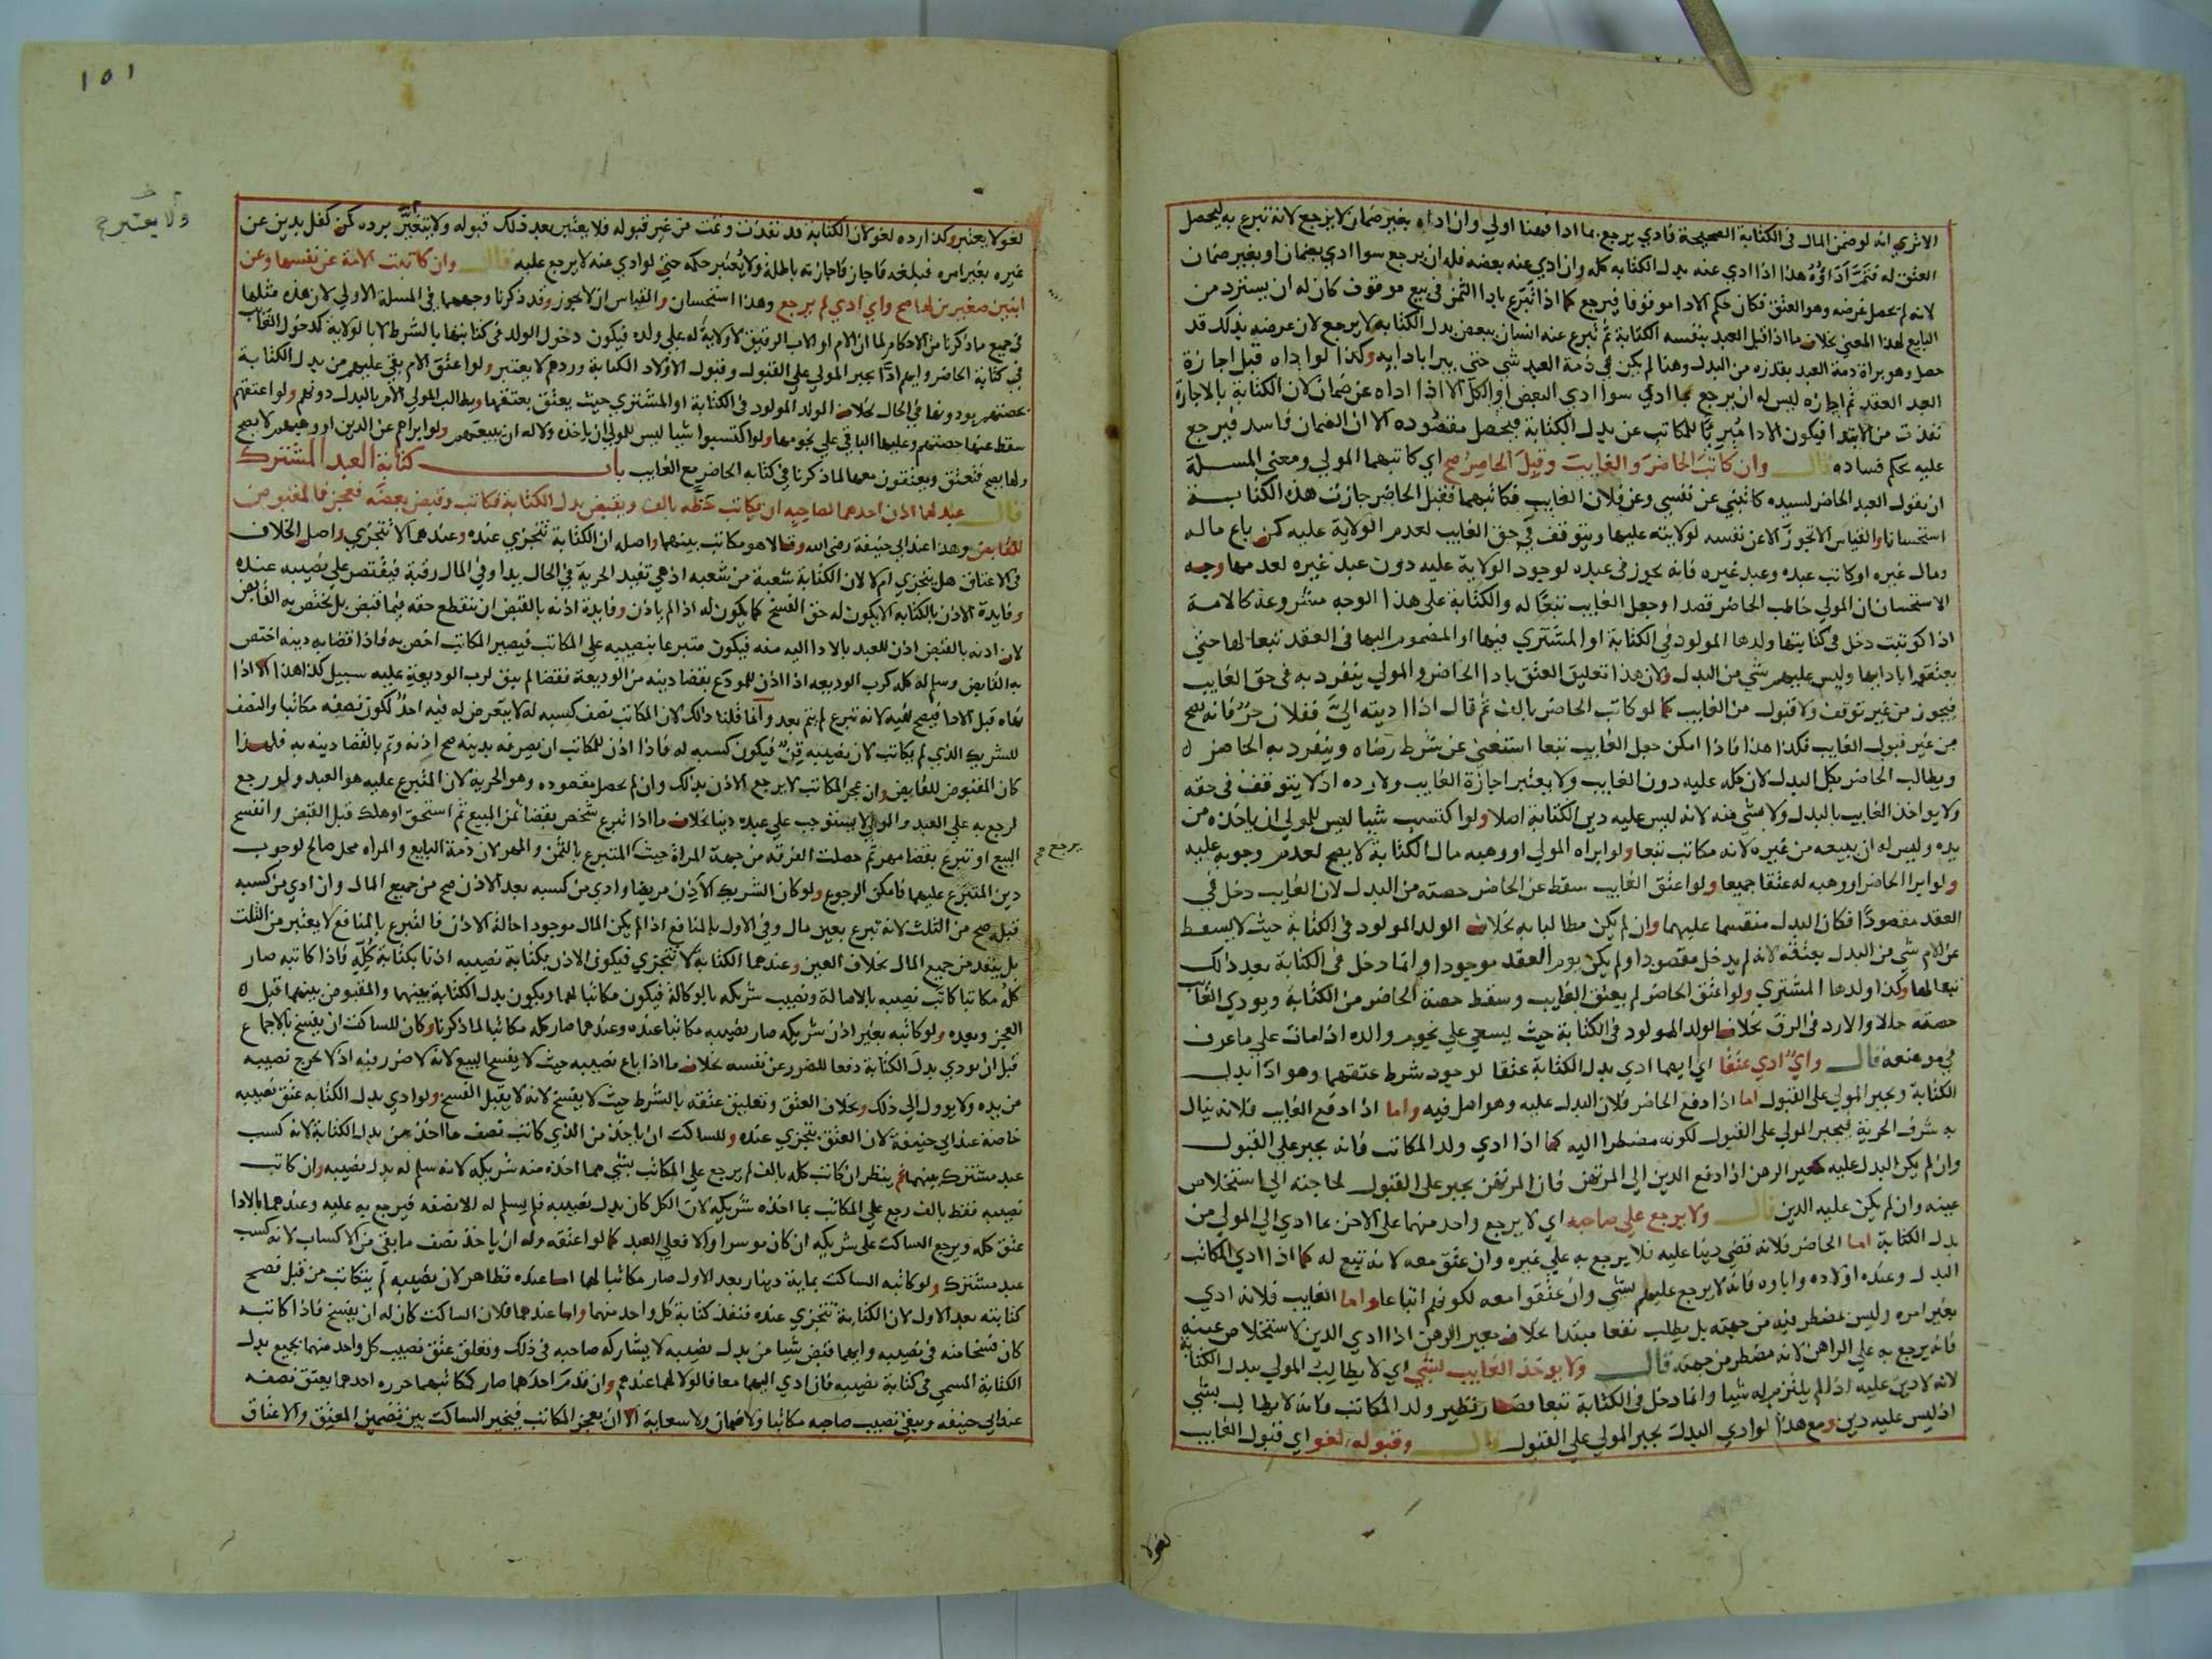 الا تري انه لو ضمن المال في الكتابة الصحيحة فادي يرجع بما ادا فهنا اولي وان اداه بغير ضمان لا يرجع لانه تبرع به ليحصل
العتق له فتمَّ اداؤه هذا اذا ادي عنه بدل الكتابه كله وان ادي عنه بعضه فله ان يرجع سوا ادي بضمان او بغير ضمان
لانه لم يحصل غرضه وهو العتق فكان حكم الادا موقوفا فيرجع كما اذا تبرع بادا الثمن في بيع موقوف كان له ان يسترد من
البايع لهذا المعني بخلاف ما اذا قبل العبد بنفسه الكتابة ثم تبرع عنه انسان ببعض بدل الكتابه لا يرجع لان غرضه بذلك قد
حصل وهو براة ذمة العبد بقدره من البدل وهنا لم يكن في ذمة العبد شي حتي يبرا بادايه وكذا لو اداه قبل اجازة
العبد العقد ثم اجازه ليس له ان يرجع بما ادي سوا ادي البعض او الكل الا اذا اداه عن ضمان لان الكتابة بالاجازة
نفذت من الابتدا فيكون الادا مُبرِيًا للمكاتب عن بدل الكتابة فيحصل مقصوده الا ان الضمان فاسد فيرجع
عليه بحكم فساده قال وان كاتب الحاضر والغايب وقبل الحاضر صح اي كاتبهما المولي ومعني المسـلة
ان يقول العبد الحاضر لسيده كاتبني عن نفسي وعن فلان الغايب فكاتبهما فقبل الحاضر جازت هذه الكتابـة
استحسانا والقياس الا تجوز الا عن نفسه لولايته عليها ويتوقف في حق الغايب لعدم الولاية عليه كمن باع ماله
ومال غيره او كاتب عبده وعبد غيره فانه يجوز في عبده لوجود الولاية عليه دون عبد غيره لعدمها وجه
الاستحسان ان المولي خاطب الحاضر قصدا وجعل الغايب تبعًا له والكتابة علي هذا الوجه مشروعة كالامة
اذا كوتبت دخل في كتابتها ولدها المولود في الكتابة او المشتري فيها او المضموم اليها في العقد تبعا لها حتي
يعتقوا بادايها وليس عليهم شي من البدل ولان هذا تعليق العتق بادا الحاضر والمولي ينفرد به في حق الغايب
فيجوز من غير توقف ولا قبول من الغايب كما لو كاتب الحاضر بالف ثم قال اذا اديته اليّ ففلان حرّ فانه يصح
من غير قبول الغايب فكذا هذا فاذا امكن جعل الغايب تبعا استغني عن شرط رضاه وينفرد به الحاضر
ويطالب الحاضر بكل البدل لان كله عليه دون الغايب ولا يعتبر اجازة الغايب ولا رده اذ لا يتوقف في حقه
ولا يواخذ الغايب بالبدل ولا بشي منه لانه ليس عليه دين الكتابة اصلا ولو اكتسب شيا ليس للمولي ان ياخذه من
يده وليس له ان يبيعه من غيره لانه مكاتب تبعا ولو ابراه المولي او وهبه مال الكتابة لا يصح لعدم وجوبه عليه
ولو ابرا الحاضر او وهبه له عتقا جميعا ولو اعتق الغايب سقط عن الحاضر حصته من البدل لان الغايب دخل في
العقد مقصودًا فكان البدل منقسما عليهما وان لم يكن مطالبا به بخلاف الولد المولود في الكتابة حيث لا يسقط
عن الام شي من البدل بعتقه لانه لم يدخل مقصودا ولم يكن يوم العقد موجودا وانما دخل في الكتابة بعد ذالك
تبعا لها وكذا ولدها المشتري ولو اعتق الحاضر لم يعتق الغايب وسقط حصة الحاضر من الكتابة ويودي الغايب
حصته حالا والا رد في الرق بخلاف الولد المولود في الكتابة حيث يسعي علي نجوم والده اذا مات علي ما عرف
في موضعه قال وايٌّ ادي عتقا اي ايهما ادي بدل الكتابة عتقا لوجود شرط عتقهما وهو ادا بدل
الكتابة ويجبر المولي علي القبول اما اذا دفع الحاضر فلان البدل عليه وهو اصل فيه واما اذا دفع الغايب فلانه ينال
به شرف الحرية فيجبر المولي علي القبول لكونه مضطرا اليه كما اذا ادي ولد المكاتب فانه يجبر علي القبول
وان لم يكن البدل عليه كمعير الرهن اذا دفع الدين الي المرتهن فان المرتهن يجبر علي القبول لحاجته الي استخلاص
عينه وان لم يكن عليه الدين قال ولا يرجع علي صاحبه اي لا يرجع واحد منهما علي الاخر بما ادي الي المولي من
بدل الكتابة اما الحاضر فلانه قضي دينا عليه فلا يرجع به علي غيره وان عتق معه لانه تبع له كما اذا ادي المكاتب
البدل وعنده اولاده واباوه فانه لا يرجع عليهم بشي وان عتقوا معه لكونهم اتباعا واما الغايب فلانه ادي
بغير امره وليس بمضطر فيه من جهته بل يطلب نفعا مبتدا بخلاف معير الرهن اذا ادي الدين لاستخلاص عينه
فانه يرجع به علي الراهن لانه مضطر من جهته قال ولا يوخذ الغايب بشي اي لا يطالب المولي ببدل الكتابة
لانه لا دين عليه اذ لم يلتزم له شيا وانما دخل في الكتابة تبعا فصار نظير ولد المكاتب فانه لا يطالب بشي
اذ ليس عليه دين ومع هذا لو ادي البدل يجبر المولي علي القبول قال وقبوله لغو اي قبول الغايب
لغو لا
١٥١
لغو لا يعتبر وكذا رده لغو لان الكتابة قد نفذت وتمت من غير قبوله فلا يعتبر بعد ذلك قبوله ولا يتغير برده كمن كفل بدين عن
غيره بغير امره فبلغه فاجاز فاجازته باطلة ولا يُعتبر حكمه حتي لو ادي عنه لا يرجع عليه قال وان كاتبت الامة عن نفسها وعن
ابنين صغيرين لها صح واي ادي لم يرجع وهذا استحسان والقياس ان لا يجوز وقد ذكرنا وجههما في المسلة الاولي لان هذه مثلها
في جميع ما ذكرنا من الاحكام لما ان الام او الاب الرقيق لا ولاية له علي ولده فيكون دخول الولد في كتابتها بالشرط لا بالولاية كدخول الغايب
في كتابة الحاضر وايهم ادّا يجبر المولي علي القبول وقبول الاولاد الكتابة وردهم لا يعتبر ولو اعتق الام بقي عليهم من بدل الكتابة
بحصتهم يودونها في الحال بخلاف الولد المولود في الكتابة او المشتري حيث يعتق بعتقها ويطالب المولي الام بالبدل دونهم ولو اعتقهم
سقط عنها حصتهم وعليها الباقي علي نجومها ولو اكتسبوا شيا ليس للمولي ان ياخذه ولا له ان يبيعهم ولو ابراهم عن الدين او وهبهم لا يصح
ولها يصح فتعتق ويعتقون معها لما ذكرنا في كتابة الحاضر مع الغايب باب كتابة العبد المشترك
قال عبد لهما اذن احدهما لصاحبه ان يكاتب حظّه بالف ويقبض بدل الكتابة فكاتب وقبض بعضه فعجز فالمقبوض
للقابض وهذا عند ابي حنيفة رضي الله وقالا هو مكاتب بينهما واصله ان الكتابة تتجزي عنده وعندهما لا تتجزي واصل الخلاف
في الاعتاق هل يتجزي ام لا لان الكتابة شعبة من شعبه اذ هي تفيد الحرية في الحال يدا وفي المال رقبة فيقتصر علي نصيبه عنده
وفايدة الاذن بالكتابة الا يكون له حق الفسخ كما يكون له اذا لم ياذن وفايدة اذنه بالقبض ان ينقطع حقه فيما قبض بل يختص به القابض
لان اذنه بالقبض اذن للعبد بالادا اليه منه فيكون متبرعا بنصيبه علي المكاتب فيصير المكاتب اخص به فاذا قضا به دينه اختص
به القابض وسلم له كله كرب الوديعه اذا اذن للمودَع بقضا دينه من الوديعة فقضا لم يبق لرب الوديعة عليه سبيل كذا هذا الا اذا
نهاه قبل الادا فيصح نهيه لانه تبرع لم يتم بعد وانما قلنا ذالك لان المكاتب نصف كسبه له لا يتعرض له فيه احد لكون نصفه مكاتبا والنصف
للشريك الذي لم يكاتب لان نصيبه قِنّ فيكون كسبه له فاذا اذن للمكاتب ان يصرفه بدينه صح اذنه وتم بالقضا دينه به فلهذا
كان المقبوض للقابض وان عجز المكاتب لا يرجع الاذن بذالك وان لم يحصل مقصوده وهو الحرية لان المتبرع عليه هو العبد ولو رجع
لرجع به علي العبد والمولي لا يستوجب علي عبده دينا بخلاف ما اذا تبرع شخص بقضا ثمن المبيع ثم استحق او هلك قبل القبض وانفسخ
البيع او تبرع بقضا مهر ثم حصلت الفرقه من جهة المراة حيث المتبرع بالثمن والمهر لان ذمة البايع والمراه محل صالح لوجوب
دين المتبرع عليهما فامكن الرجوع ولو كان الشريك الآذن مريضا وادي من كسبه بعد الاذن صح من جميع المال وان ادي من كسبه
قبله صح من الثلث لانه تبرع بعين مال وفي الاول بالمنافع اذ لم يكن المال موجودا حالة الاذن فالتبرع بالمنافع لا يعتبر من الثلث
بل ينفد من جميع المال بخلاف العين وعندهما الكتابة لا تتجزي فيكون الاذن بكتابة نصيبه اذنا بكتابة كلّه فاذا كاتبه صار
كله مكاتبا كاتب نصيبه بالاصالة ونصيب شريكه بالوكالة فيكون مكاتبا لهما ويكون بدل الكتابة بينهما والمقبوض بينهما قبل
العجز وبعده ولو كاتبه بغير اذن شريكه صار نصيبه مكاتبا عنده وعندهما صار كله مكاتبا لما ذكرنا وكان للساكت ان يفسخ بالاجماع
قبل ان يودي بدل الكتابة دفعا للضرر عن نفسه بخلاف ما اذا باع نصيبه حيث لا يفسخ البيع لانه لا ضرر فيه اذ لا يخرج نصيبه
من يده ولا يوول الي ذلك وبخلاف العتق وتعليق عتقه بالشرط حيث لا يفسخ لانه لا يقبل الفسخ ولو ادي بدل الكتابه عتق نصيبه
خاصة عند ابي حنيفة لان العتق يتجزي عنده وللساكت ان ياخذ من الذي كاتب نصف ما اخذ من بدل الكتابة لانه كسب
عبد مشترك بينهما ثم ينظر ان كاتب كله بالف لم يرجع علي المكاتب بشي مما اخذه منه شريكه لانه سلم له بدل نصيبه وان كاتب
نصيبه فقط بالف رجع علي المكاتب بما اخذه شريكه لان الكل كان بدل نصيبه فلم يسلم له الا نصفه فيرجع به عليه وعندهما بالادا
عتق كله ويرجع الساكت علي شريكه ان كان موسرا والا فعلي العبد كما لو اعتقه وله ان ياخذ نصف ما بقي من الاكساب لانه كسب
عبد مشترك ولو كاتبه الساكت بماية دينار بعد الاول صار مكاتبا لهما اما عنده فظاهر لان نصيبه لم يتكاتب من قبل فصح
كتابته بعد الاول لان الكتابة تتجزي عنده فتنفذ كتابة كل واحد منهما واما عندهما فلان الساكت كان له ان يفسخ فاذا كاتبه
كان فسخا منه في نصيبه وايهما قبض شيا من بدل نصيبه لا يشاركه صاحبه في ذلك وتعلق عتق نصيب كل واحد منهما بجميع بدل
الكتابة المسمي في كتابة نصيبه فان ادي اليهما معا فالولا لهما عندهم وان قدم احدهما صار كمكاتبهما حرره احدهما يعتق نصفه
عند ابي حنيفه ويبقي نصيب صاحبه مكاتبا ولا ضمان ولا سعاية الا ان يعجز المكاتب فيخير الساكت بين تضمين المعتق والاعتاق
ولا يعتبر صح
يرجع صح